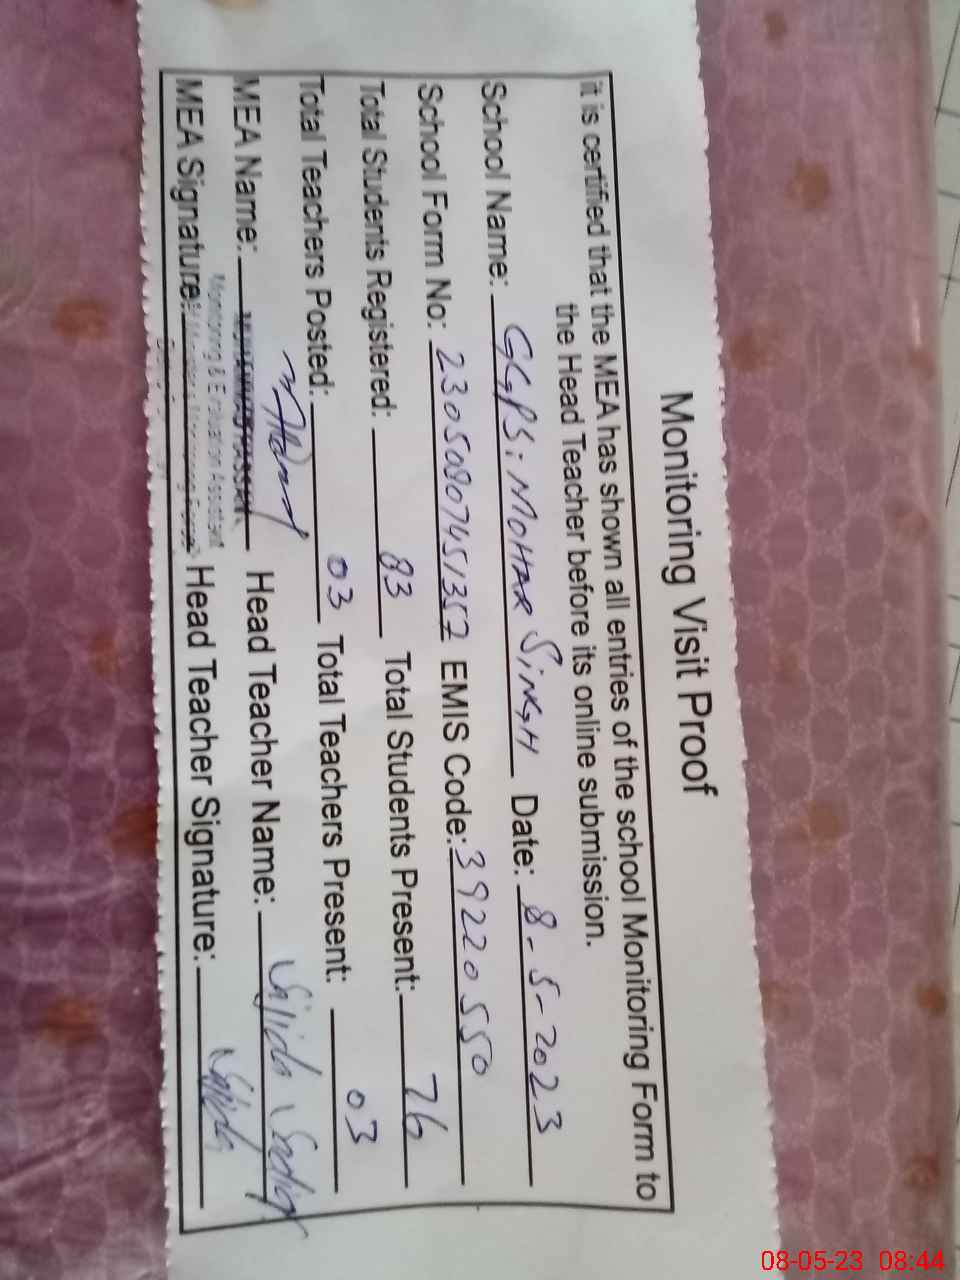 Monitoring Visit Proof
it is certified that the MEA has shown all entries of the school Monitoring Form to
the Head Teacher before its online submission.
School Name: GGPS: MOHAR SiNGH Date: 8-5-2023
School Form No: 23050807451357 EMIS Code: 39220550
Total Students Registered: 83 Total Students Present: 76
Total Teachers Posted: 03 Total Teachers Present: 03
MEA Name: Head Teacher Name: Sajida Sadiq
Monitoring & Evaluation Assistant
MEA Signature: Head Teacher Signature: Sajida
08-05-23 08:44